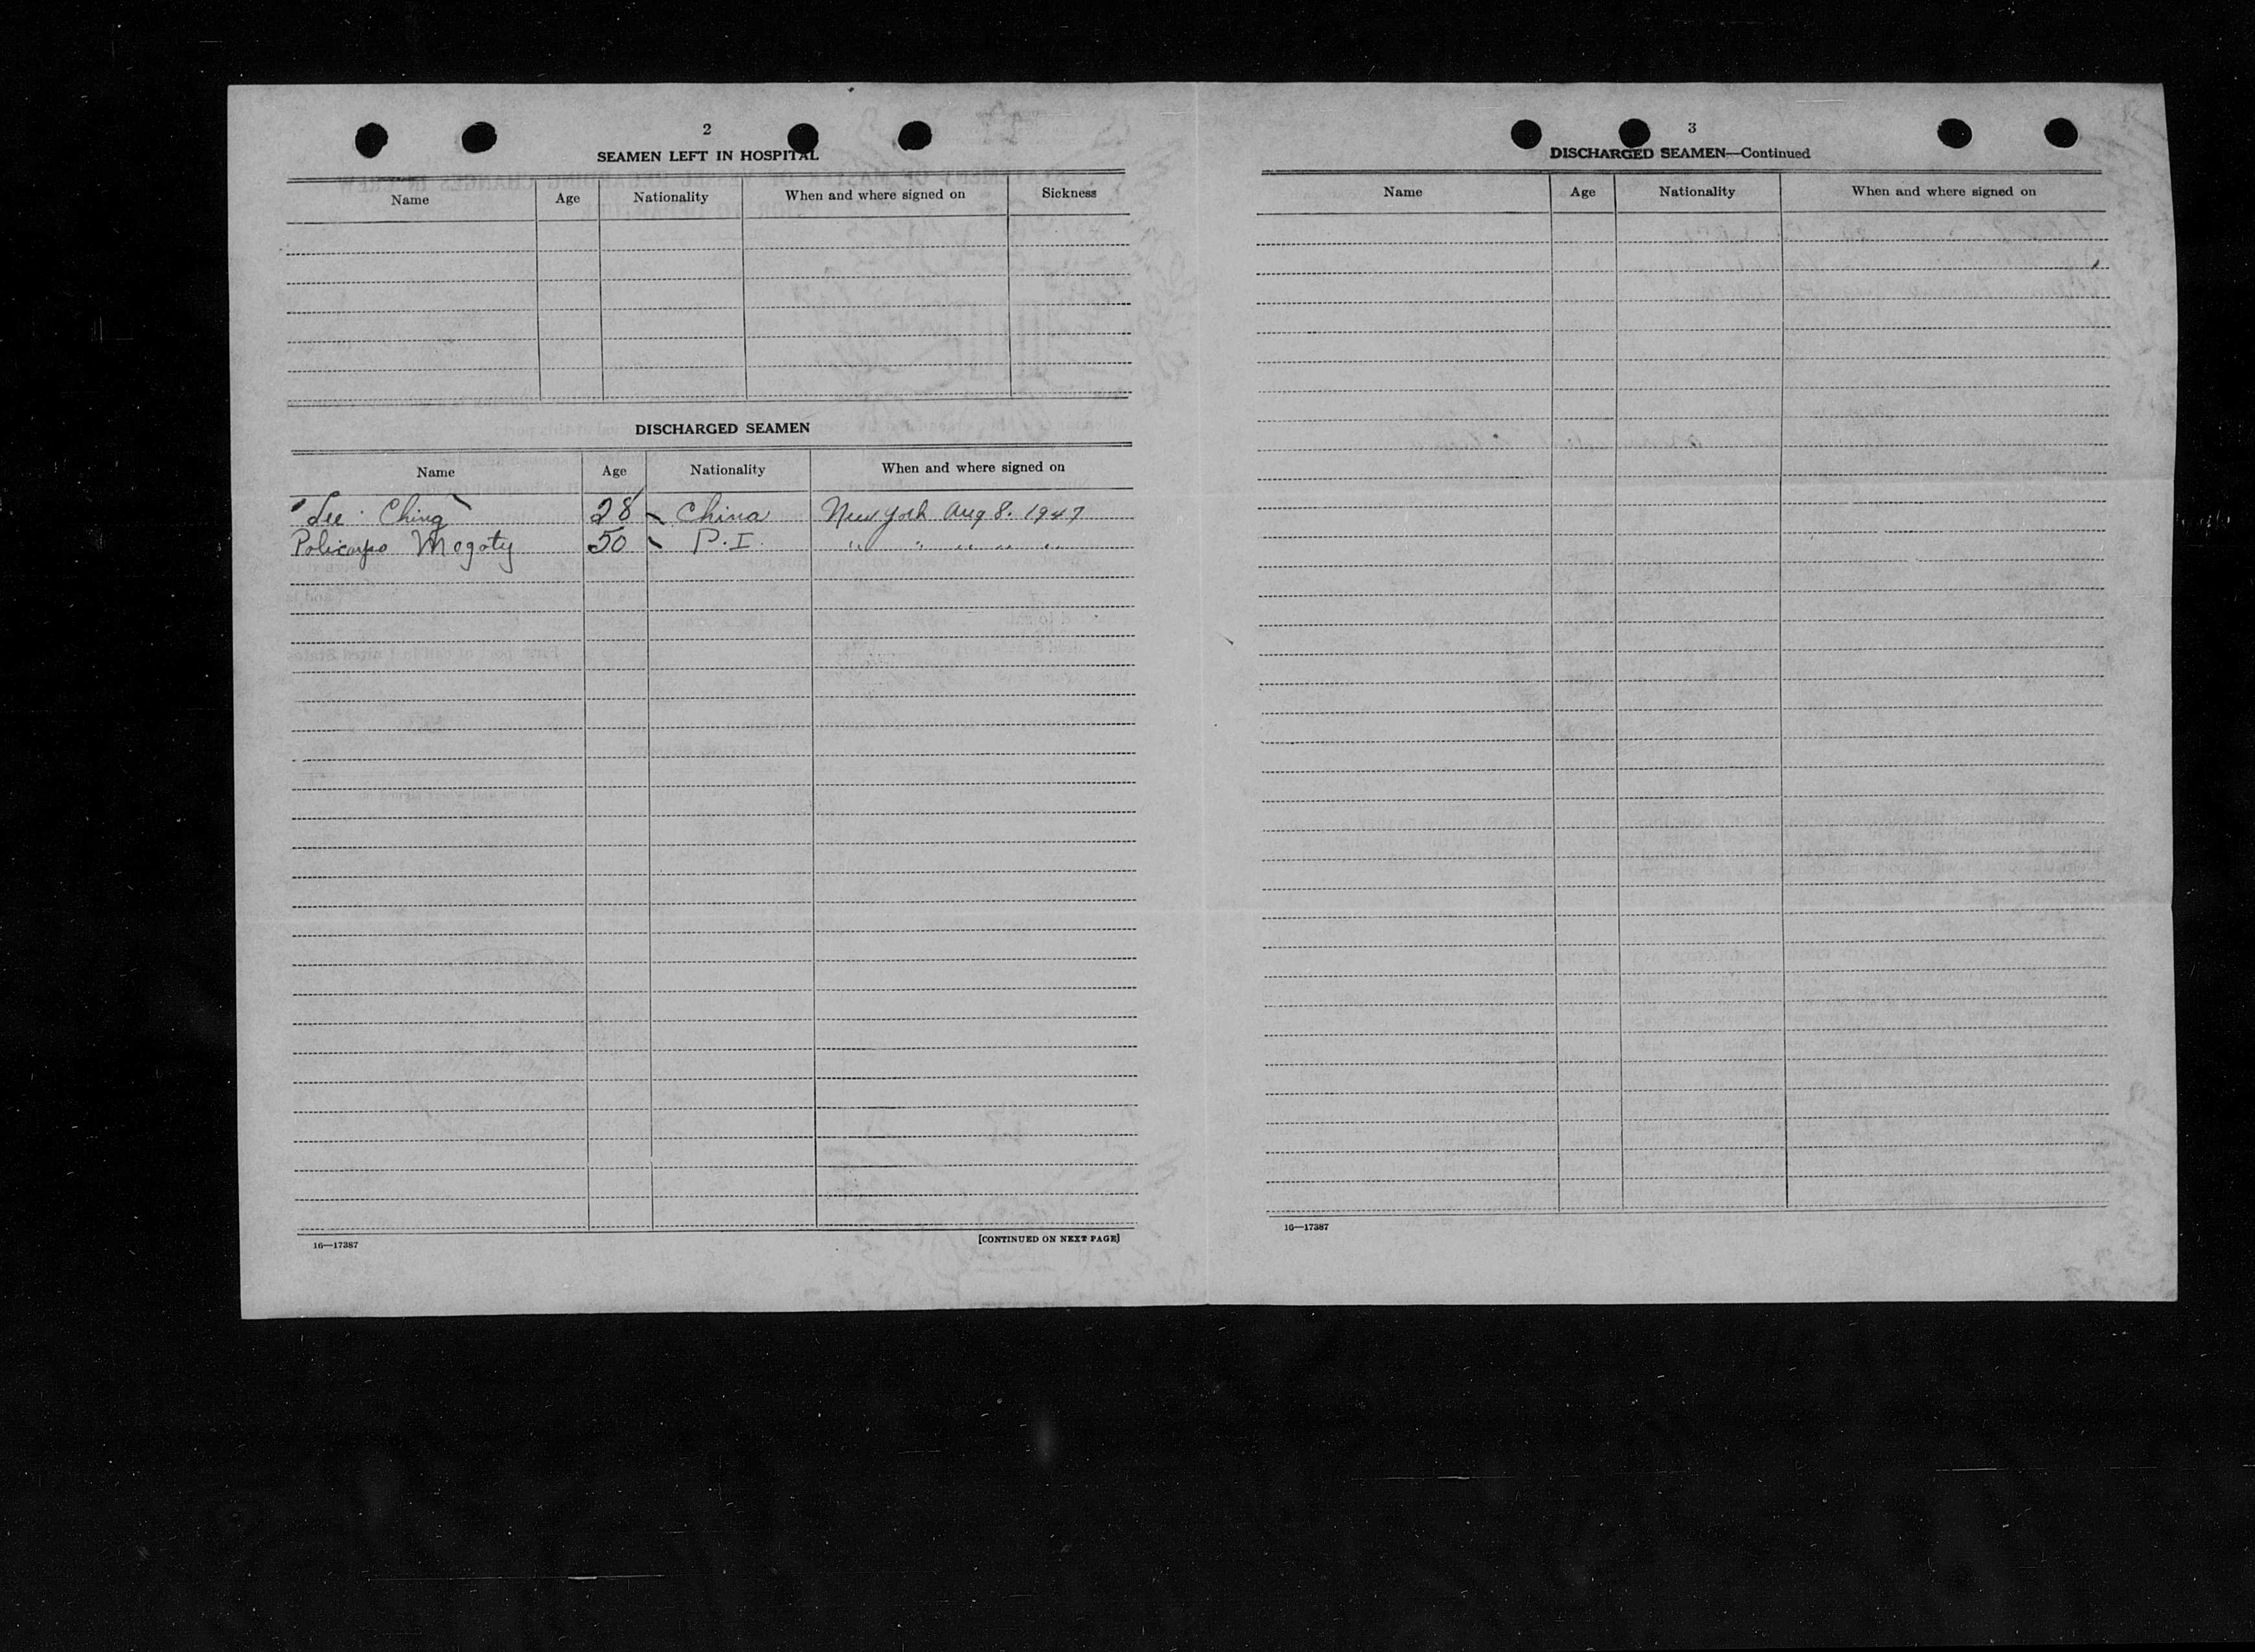 2
SEAMEN LEFT IN HOSPITAL
Name Age Nationality When and where signed on Sickness
DISCHARGED SEAMEN
Name Age Nationality When and where signed on
Lee Ching 28 China New York Aug 8. 1947
Policarpo Mogoty 50 P.I. " " " " "
16—17387 [CONTINUED ON NEXT PAGE]
3
DISCHARGED SEAMEN—Continued
Name Age Nationality When and where signed on
16—17387